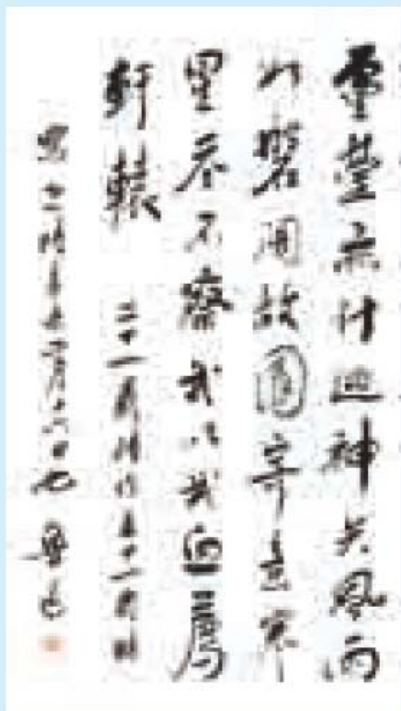 靈臺無計逃神矢風雨
如磐闇故園寄意寒
星荃不察我以我血薦
軒轅 二十一歲時作五十一歲時
寫之時辛未二月十六日也 魯迅